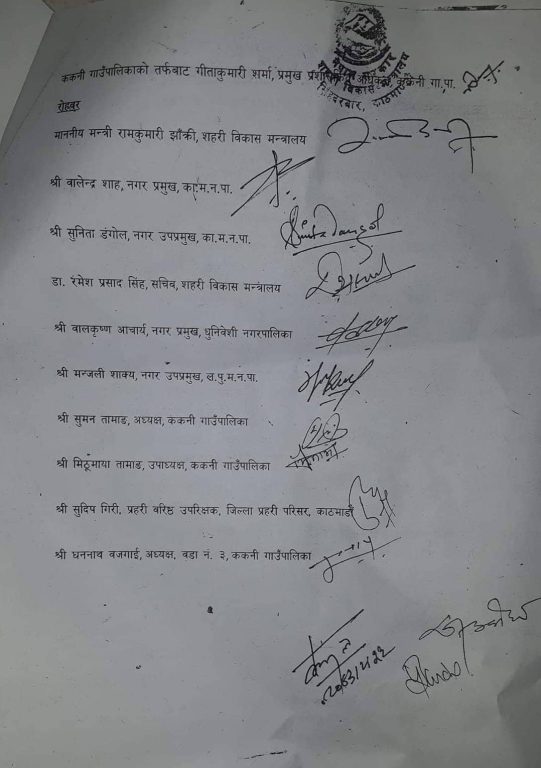 ककनी गाउँपालिकाको तर्फबाट गीताकुमारी शर्मा, प्रमुख प्रशासकीय अधिकृत, ककनी गा.पा.
रोहबर
माननीय मन्त्री रामकुमारी झाँक्री, शहरी विकास मन्त्रालय
श्री वालेन्द्र शाह, नगर प्रमुख, का.म.न.पा.
श्री सुनिता डंगोल, नगर उपप्रमुख, का.म.न.पा.
डा. रमेश प्रसाद सिंह, सचिव, शहरी विकास मन्त्रालय
श्री वालकृष्ण आचार्य, नगर प्रमुख, धुनिवेशी नगरपालिका
श्री मन्जली शाक्य, नगर उपप्रमुख, ल.पु.म.न.पा.
श्री सुमन तामाङ, अध्यक्ष, ककनी गाउँपालिका
श्री मिठुमाया तामाङ, उपाध्यक्ष, ककनी गाउँपालिका
श्री सुदिप गिरी, प्रहरी वरिष्ठ उपरिक्षक, जिल्ला प्रहरी परिसर, काठमाडौं
श्री धननाथ वजगाई, अध्यक्ष, वडा नं. ३, ककनी गाउँपालिका